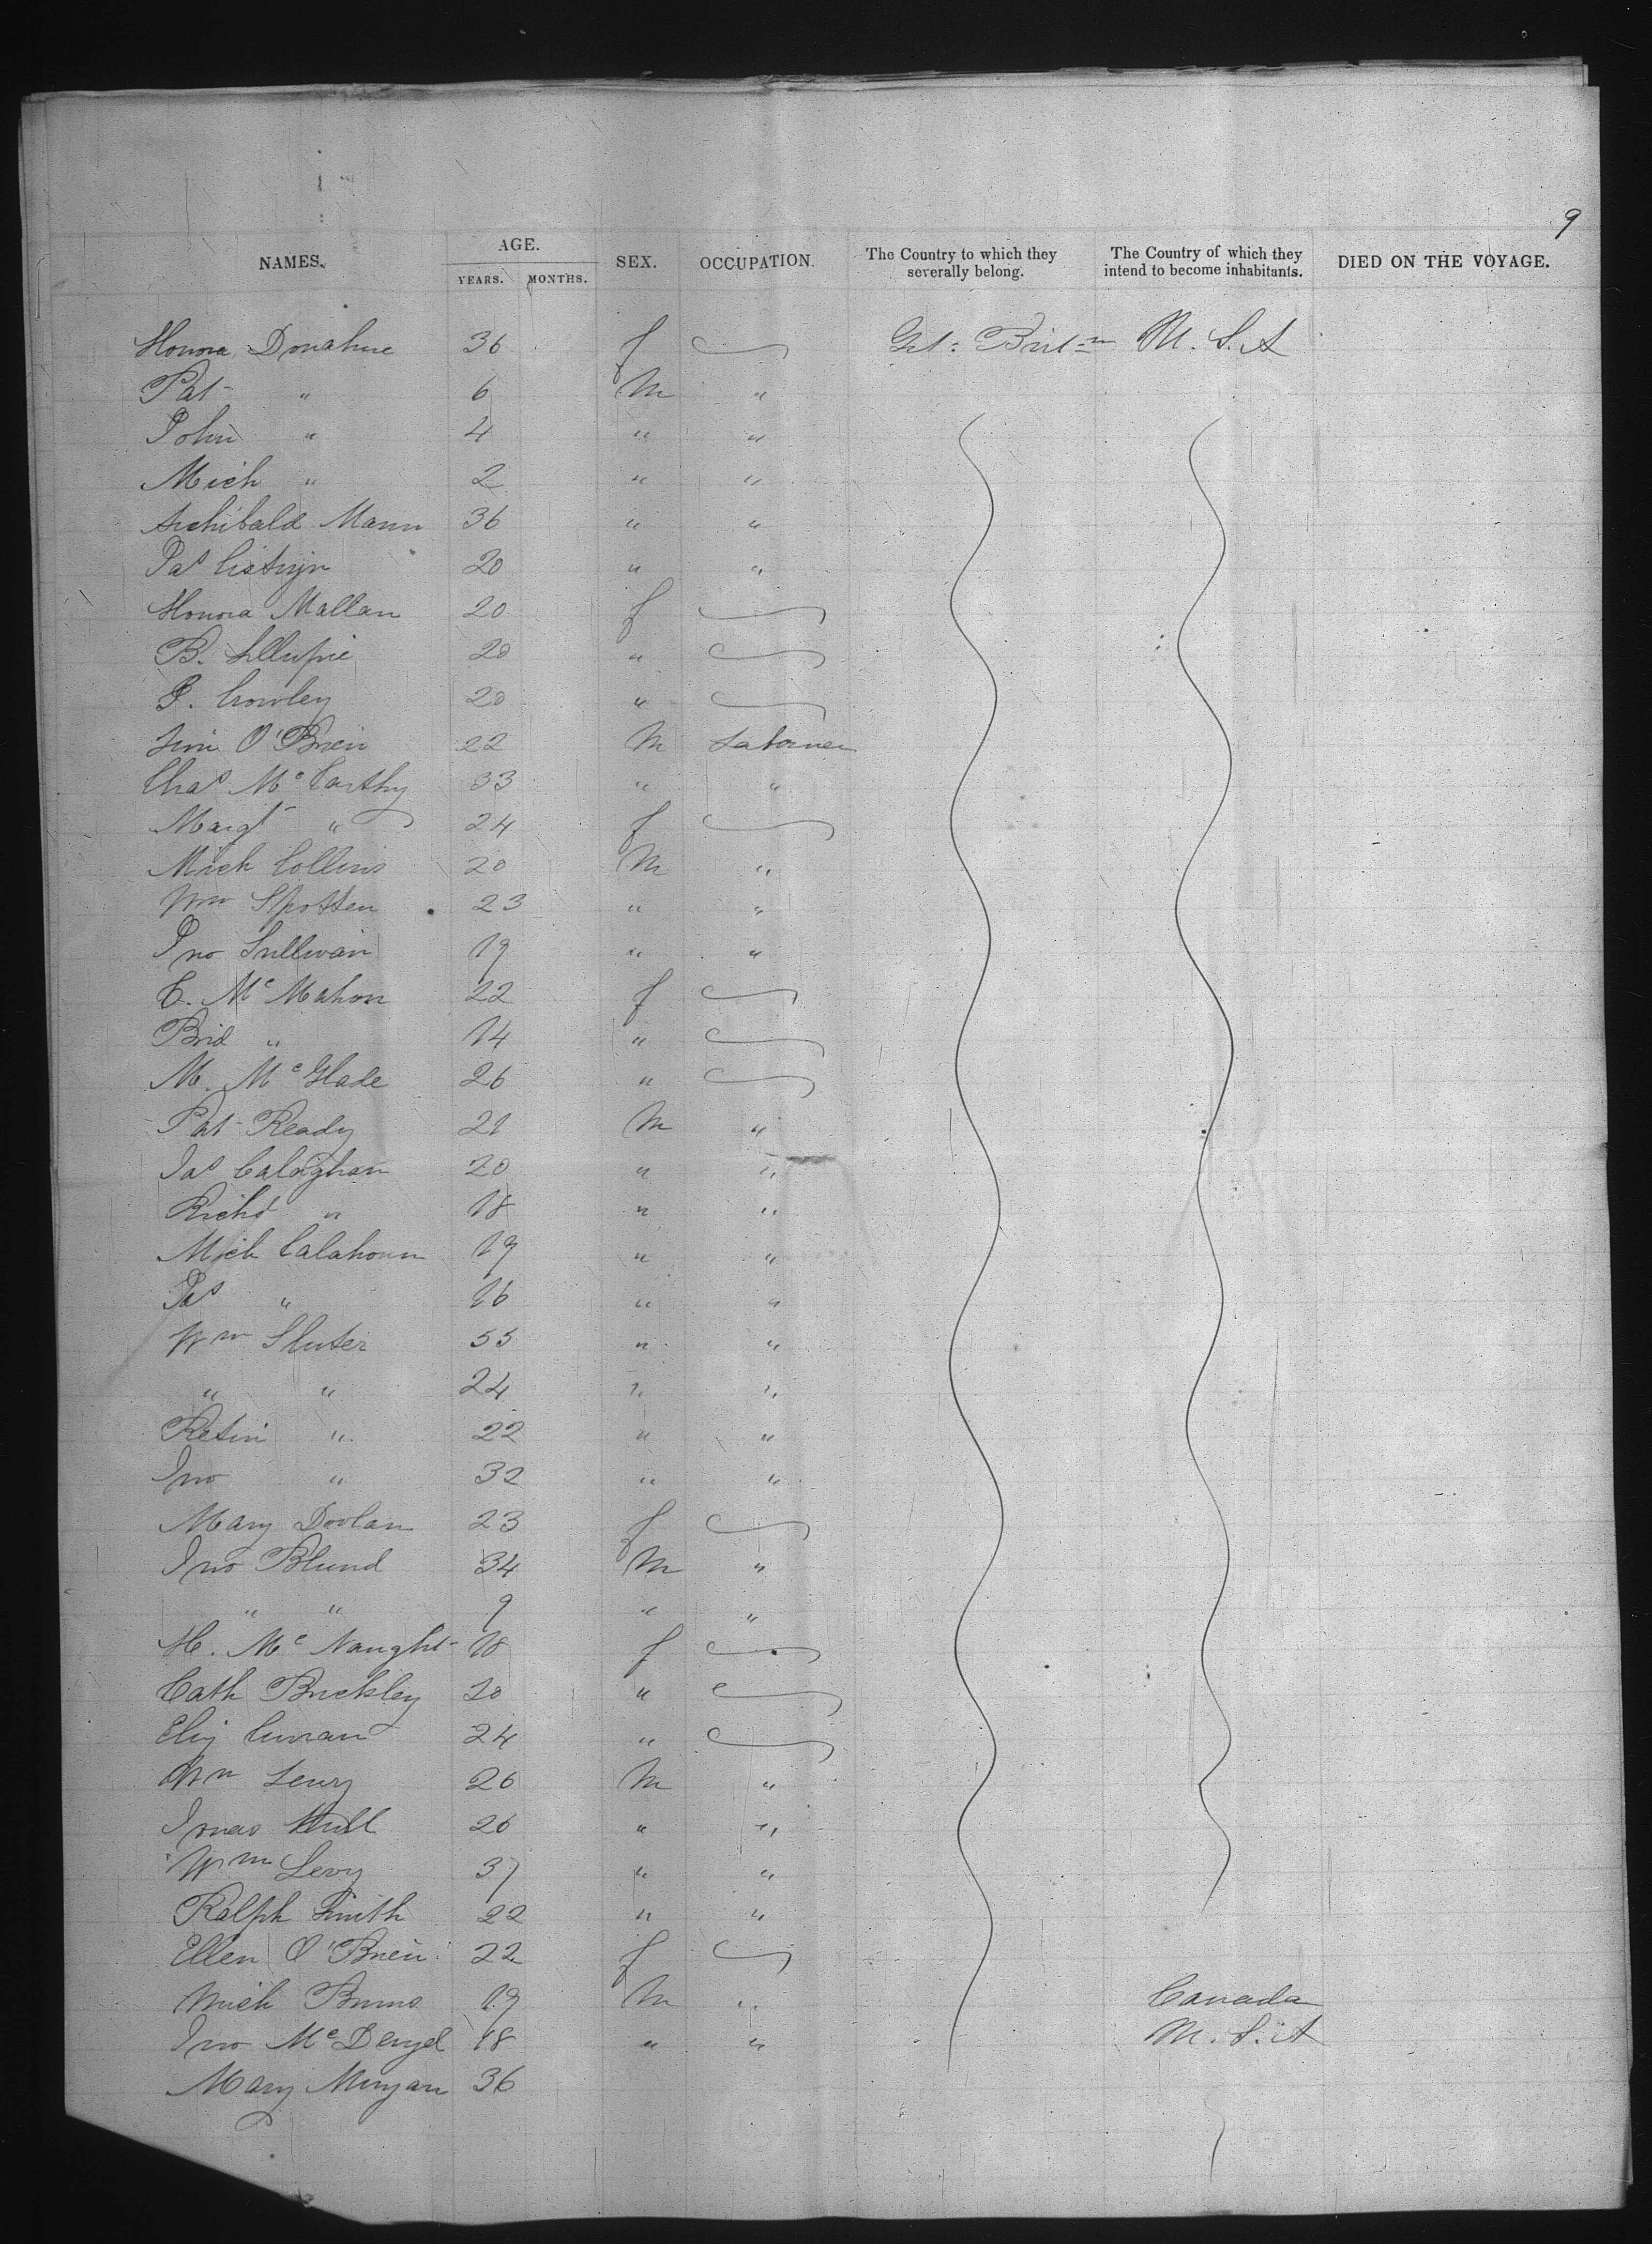 9
NAMES. AGE. YEARS. MONTHS. SEX. OCCUPATION. The Country to which they severally belong. The Country of which they intend to become inhabitants. DIED ON THE VOYAGE.
Honora Donahue 36 f Gt. Brit-n U.S.A
Pat " 6 M "
John " 4 " "
Mich " 2 " "
Archibald Mann 36 " "
Jas 20 " "
Honora Mallan 20 f
B. 20 "
P. Crowley 20 "
Jim O'Brien 22 M Labourer
Chas McCarthy 33 " "
Margt " 24 f
Mich Collins 20 M "
Wm Spotten 23 " "
Jno Sullivan 19 " "
C. McMahon 22 f
Brid " 14 "
M. McGlade 26 "
Pat Ready 21 M "
Jas Calaghan 20 " "
Richd " 18 " "
Mich Calahoun 19 " "
Jas " 16 " "
Wm Sluter 55 " "
" " 24 " "
" 22 " "
Jno " 32 " "
Mary Doolan 23 f
Jno Blund 34 M "
" " 9 " "
H. McNaught 18 f
Cath Buckley 20 "
Eliz Curran 24 "
Wm Leury 26 M "
Hull 26 " "
Wm Levy 37 " "
Ralph Smith 22 " "
Ellen O'Brien 22 f
Mich Burns 19 M " Canada
Jno 18 " " U.S.A
Mary 36